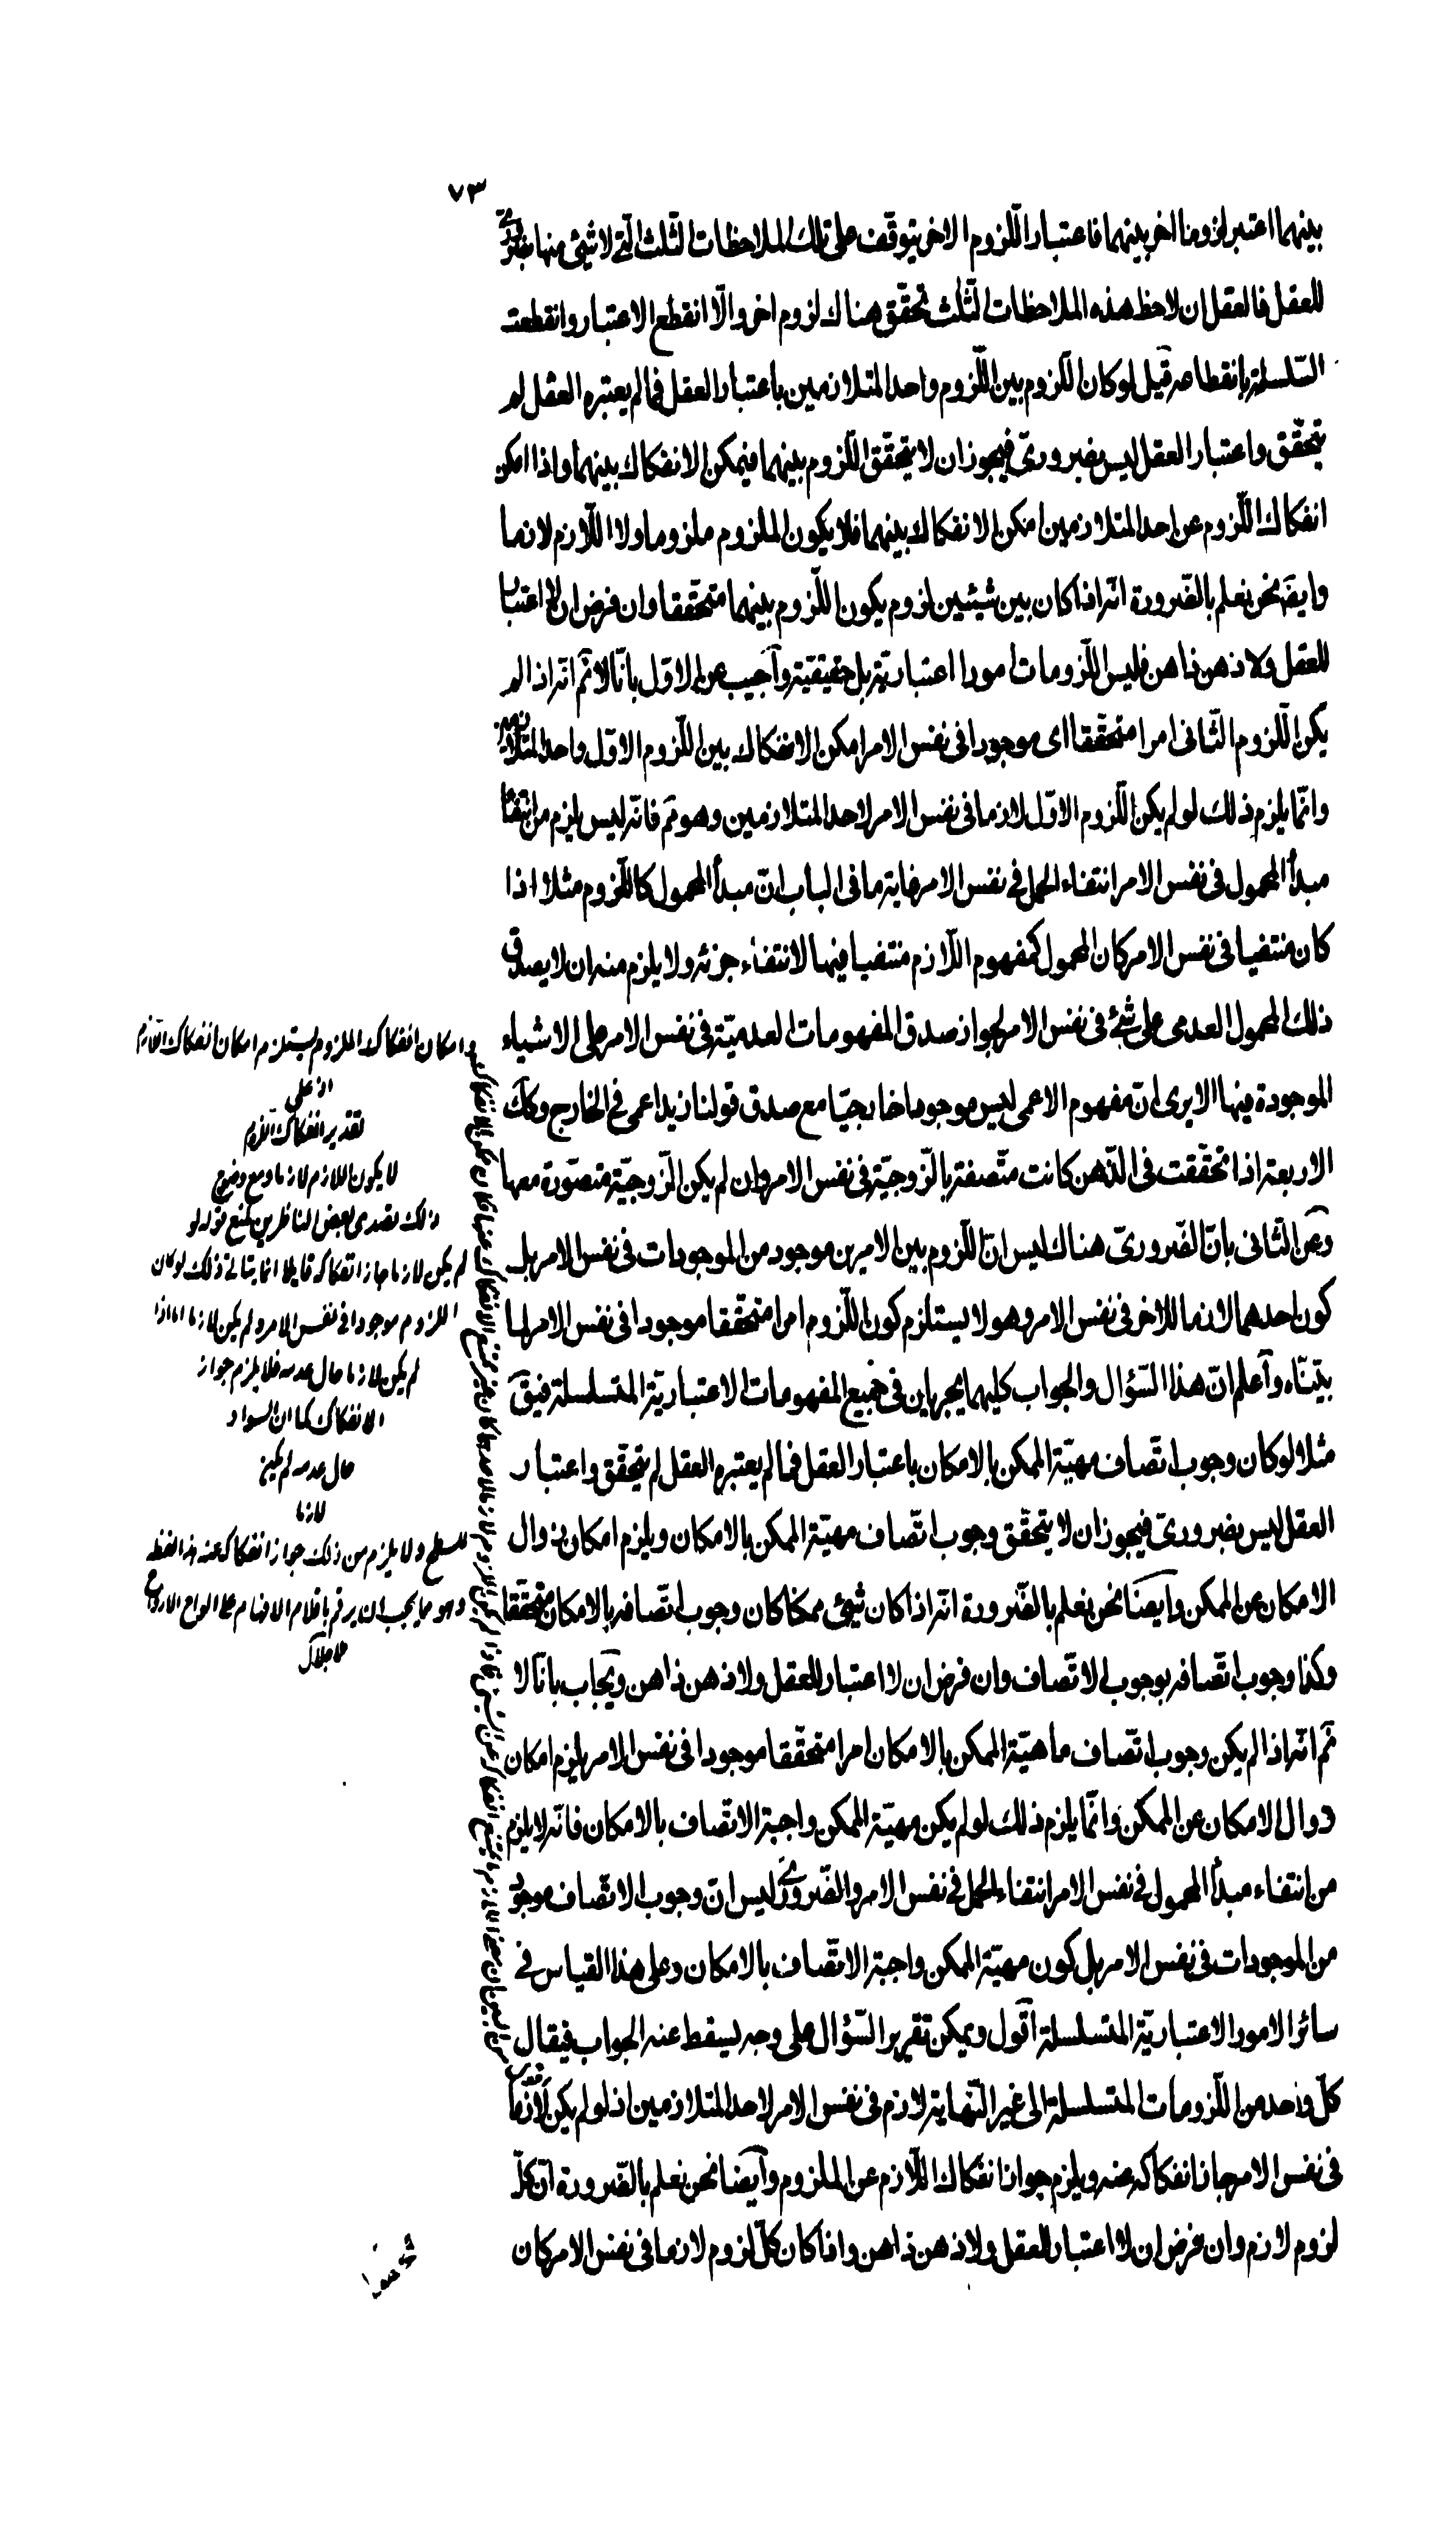 ٧٣
بينهما اعتبر لزوما اخر بينهما فاعتبار اللّزوم الاخر يتوقّف على تلك الملاحظات الثّلث الّتى لا شيئ منها بضرورىّ
للعقل فالعقل ان لاحظ هذه الملاحظات الثّلث تحقّق هناك لزوم اخر والّا انقطع الاعتبار وانقطعت
السّلسلة بانقطاعه قيل لو كان اللّزوم بين اللّزوم واحد المتلازمين باعتبار العقل فما لم يعتبره العقل لم
يتحقّق واعتبار العقل ليس بضرورىّ فيجوز ان لا يتحقّق اللّزوم بينهما فيمكن الانفكاك بينهما واذا امكن
انفكاك اللّزوم عن احد المتلازمين امكن الانفكاك بينهما فلا يكون الملزوم ملزوما ولا اللّازم لازما
وايضا نحن نعلم بالضّرورة انّه اذا كان بين شيئين لزوم يكون اللّزوم بينهما متحقّقا وان فرض ان لا اعتبار
للعقل ولا ذهن ذاهن فليس اللّزومات امورا اعتباريّة بل حقيقيّة وآجيب عن الاوّل بانّا لا نم انّه اذا لم
يكن اللّزوم الثّانى امرا متحقّقا اى موجودا فى نفس الامر امكن الانفكاك بين اللّزوم الاوّل واحد المتلازمين
وانّما يلزم ذلك لو لم يكن اللّزوم الاوّل لازما فى نفس الامر لاحد المتلازمين وهو مم فانّه ليس يلزم من انتفاء
مبدأ المحمول فى نفس الامر انتفاء الحمل فى نفس الامر غاية ما فى الباب انّ مبدأ المحمول كاللّزوم مثلا اذا
كان منتفيا فى نفس الامر كان المحمول كمفهوم اللّازم منتفيا فيها لانتفاء جزئه ولا يلزم منه ان لا يصدق
ذلك المحمول العدمى على شئ فى نفس الامر لجواز صدق المفهومات العدميّة فى نفس الامر على الاشياء
الموجودة فيها الا يرى انّ مفهوم الاعمى ليس موجودا خارجيّا مع صدق قولنا زيد اعمى فى الخارج وكك
الاربعة اذا تحقّقت فى الذّهن كانت متّصفة بالزّوجيّة فى نفس الامر وان لم يكن الزّوجيّة متصوّرة معها
وعن الثّانى بانّ الضّرورىّ هناك ليس انّ اللّزوم بين الامرين موجود من الموجودات فى نفس الامر بل
كون احدهما لازما للاخر فى نفس الامر وهو لا يستلزم كون اللّزوم امرا متحقّقا موجودا فى نفس الامر لما
بيّنّاه وآعلم انّ هذا السّؤال والجواب كليهما يجريان فى جميع المفهومات الاعتباريّة المتسلسلة فيق
مثلا لو كان وجوب اتّصاف مهيّة الممكن بالامكان باعتبار العقل فما لم يعتبره العقل لم يتحقّق واعتبار
العقل ليس بضرورىّ فيجوز ان لا يتحقّق وجوب اتّصاف مهيّة الممكن بالامكان ويلزم امكان زوال
الامكان عن الممكن وايضا نحن نعلم بالضّرورة انّه اذا كان شيئ ممكنا كان وجوب اتّصافه بالامكان متحقّقا
وكذا وجوب اتّصافه بوجوب الاتّصاف وان فرض ان لا اعتبار للعقل ولا ذهن ذاهن ويجاب بانّا لا
نم انّه اذا لم يكن وجوب اتّصاف ماهيّة الممكن بالامكان امرا متحقّقا موجودا فى نفس الامر يلزم امكان
زوال الامكان عن الممكن وانّما يلزم ذلك لو لم يكن مهيّة الممكن واجبة الاتّصاف بالامكان فانّه لا يلزم
من انتفاء مبدأ المحمول فى نفس الامر انتفاء الحمل فى نفس الامر والضّرورىّ ليس انّ وجوب الاتّصاف موجود
من الموجودات فى نفس الامر بل كون مهيّة الممكن واجبة الاتّصاف بالامكان وعلى هذا القياس فى
سائر الامور الاعتباريّة المتسلسلة اقول ويمكن تقرير السّؤال على وجه يسقط عنه الجواب فيقال
كلّ واحد من اللّزومات المتسلسلة الى غير النّهاية لازم فى نفس الامر لاحد المتلازمين اذ لو لم يكن لازما
فى نفس الامر جاز انفكاكه عنه ويلزم جواز انفكاك اللّازم عن الملزوم وآيضا نحن نعلم بالضّرورة انّ كلّ
لزوم لازم وان فرض ان لا اعتبار للعقل ولا ذهن ذاهن واذا كان كلّ لزوم لازما فى نفس الامر كان
وامكان انفكاك اللزوم يستلزم امكان انفكاك اللّازم
اذ على
تقدير انفكاك اللّزوم
لا يكون اللازم لازما ومع وضوح
ذلك تصدى بعض الناظرين لمنع قوله لو
لم يكن لازما جاز انفكاكه قايلا انما يتاتى ذلك لو كان
اللزوم موجودا فى نفس الامر ولم يكن لازما اما اذا
لم يكن لازما حال عدمه فلا يلزم جواز
الانفكاك كما ان السواد
حال عدمه لم يكن
لازما
للسطح ولا يلزم من ذلك جواز انفكاكه عنه هذا لفظه
وهو مما يجب ان يرقم باقلام الافهام على الواح الارواح
ملا جلال